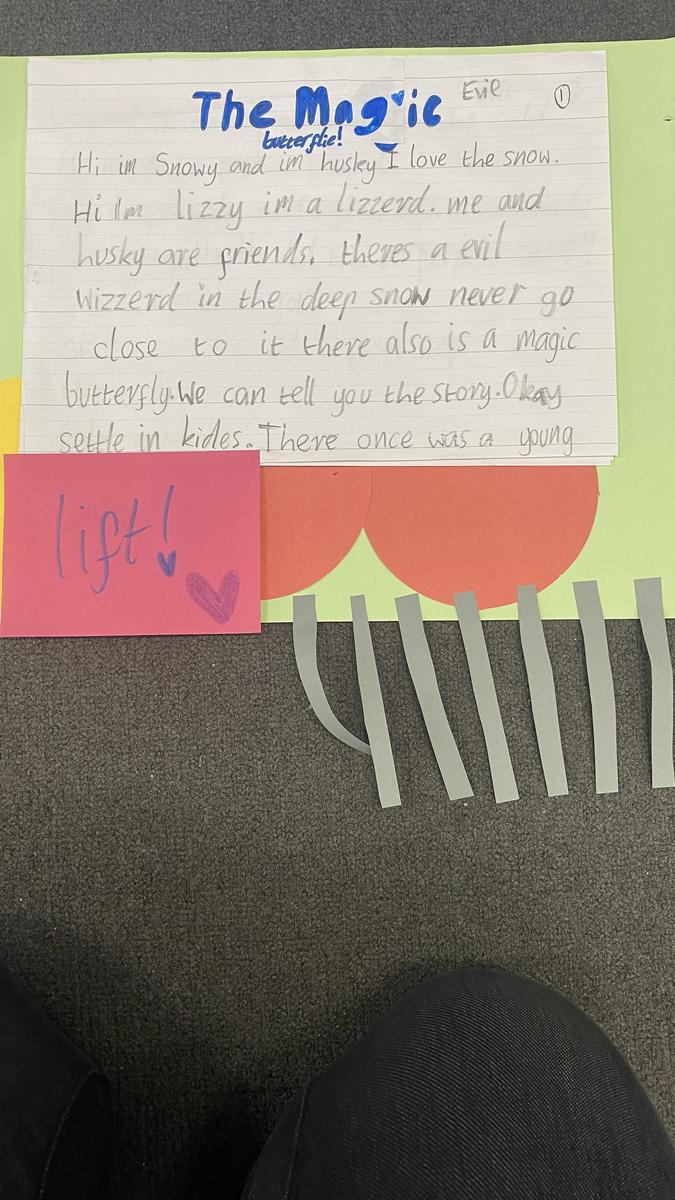 The Magic Evie ①
butterflie!
Hi im Snowy and im husky I love the snow.
Hi Im lizzy im a lizzerd. me and
husky are friends. theres a evil
wizzerd in the deep snow never go
close to it there also is a magic
butterfly.We can tell you the story.Okay
settle in kides.There once was a young
lift!